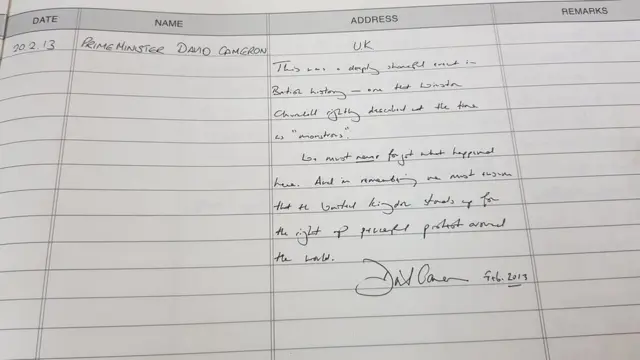 DATE NAME ADDRESS REMARKS
20.2.13 PRIME MINISTER DAVID CAMERON UK
This was a deeply shameful event in
British history – one that Winston
Churchill rightly described at the time
as "monstrous".
We must never forget what happened
here. And in remembering we must ensure
that the United Kingdom stands up for
the right of peaceful protest around
the world.
David Cameron Feb. 2013